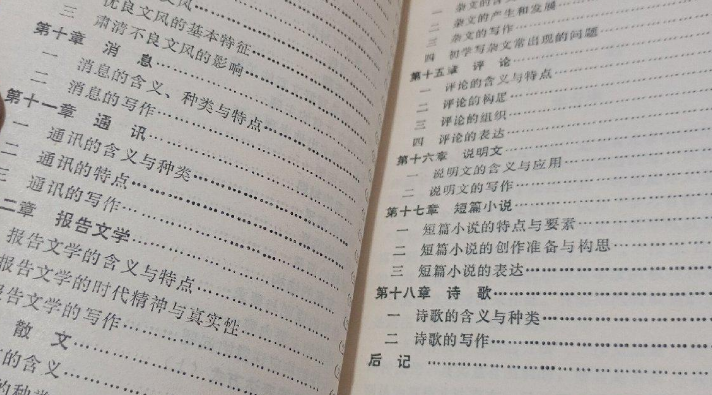 文风
三 优良文风的基本特征
肃清不良文风的影响
第十章 消息
一 消息的含义、种类与特点
二 消息的写作
第十一章 通讯
一 通讯的含义与种类
二 通讯的特点
三 通讯的写作
二章 报告文学
报告文学的含义与特点
报告文学的时代精神与真实性
报告文学的写作
散文
的含义
的种类
一 杂文的含义
二 杂文的产生和发展
三 杂文的写作
四 初学写杂文常出现的问题
第十五章 评论
一 评论的含义与特点
二 评论的构思
三 评论的组织
四 评论的表达
第十六章 说明文
一 说明文的含义与应用
二 说明文的写作
第十七章 短篇小说
一 短篇小说的特点与要素
二 短篇小说的创作准备与构思
三 短篇小说的表达
第十八章 诗歌
一 诗歌的含义与种类
二 诗歌的写作
后记